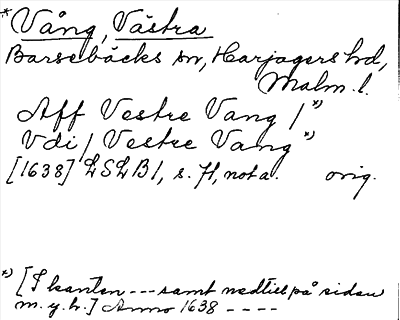 * Vång, Västra
Barsebäcks sn, Harjagers hd,
Malm. l.
Aff Vestre Vang / *)
Vdi / Vestre Vang *)
[1638] LSLB1, s. H, nota. orig.
*) [I kanten --- samt nedtill på sidan
m. y. h.] Anno 1638 - - - -